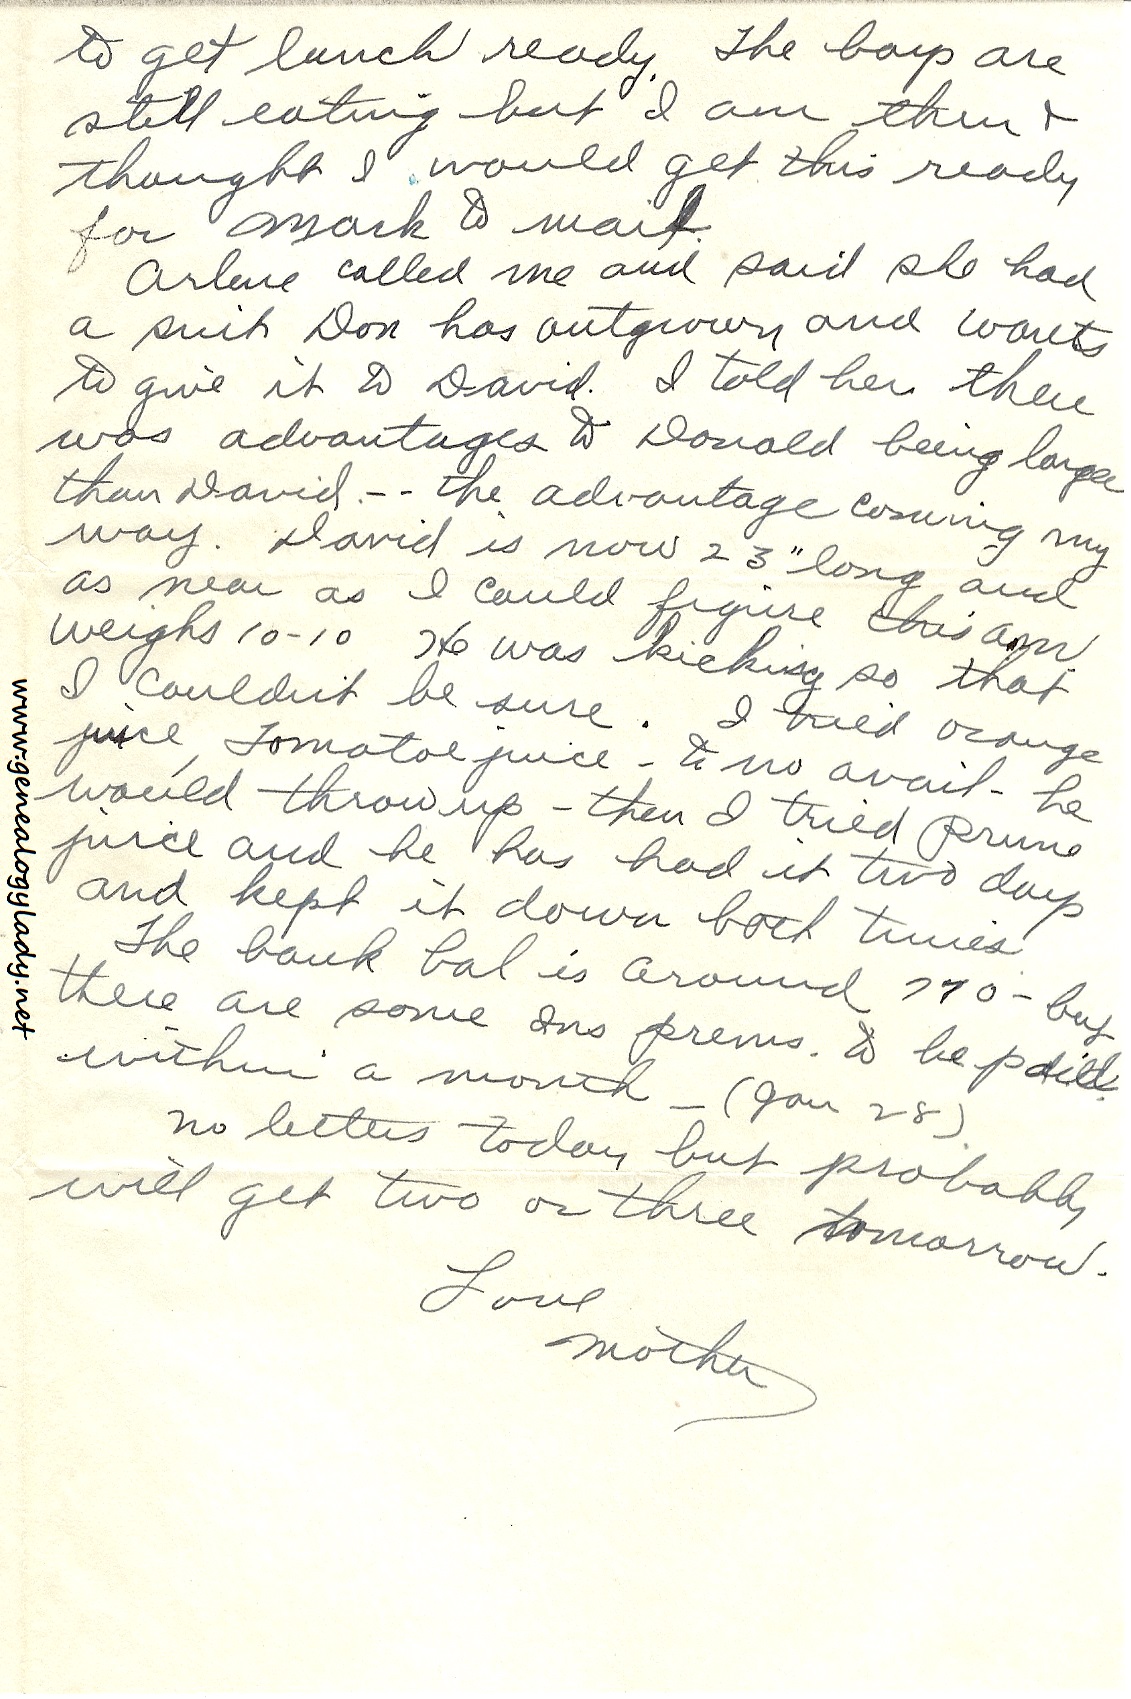 to get lunch ready. The boys are
still eating but I am thru &
thought I would get this ready
for Mark to mail.
Arlene called me and said she had
a suit Don has outgrown and wants
to give it to David. I told her there
was advantages to Donald being larger
than David. -- the advantage coming my
way. David is now 23" long and
as near as I could figure this am
weighs 10-10 He was kicking so that
I couldn't be sure. I tried orange
juice, Tomatoe juice - to no avail - he
would throw up - then I tried prune
juice and he has had it two days
and kept it down both times.
The bank bal is around 770 - but
there are some Ins prems. to be paid
within a month - (Jan 28).
no letters today but probably
will get two or three tomorrow.
Love
Mother
www.genealogylady.net